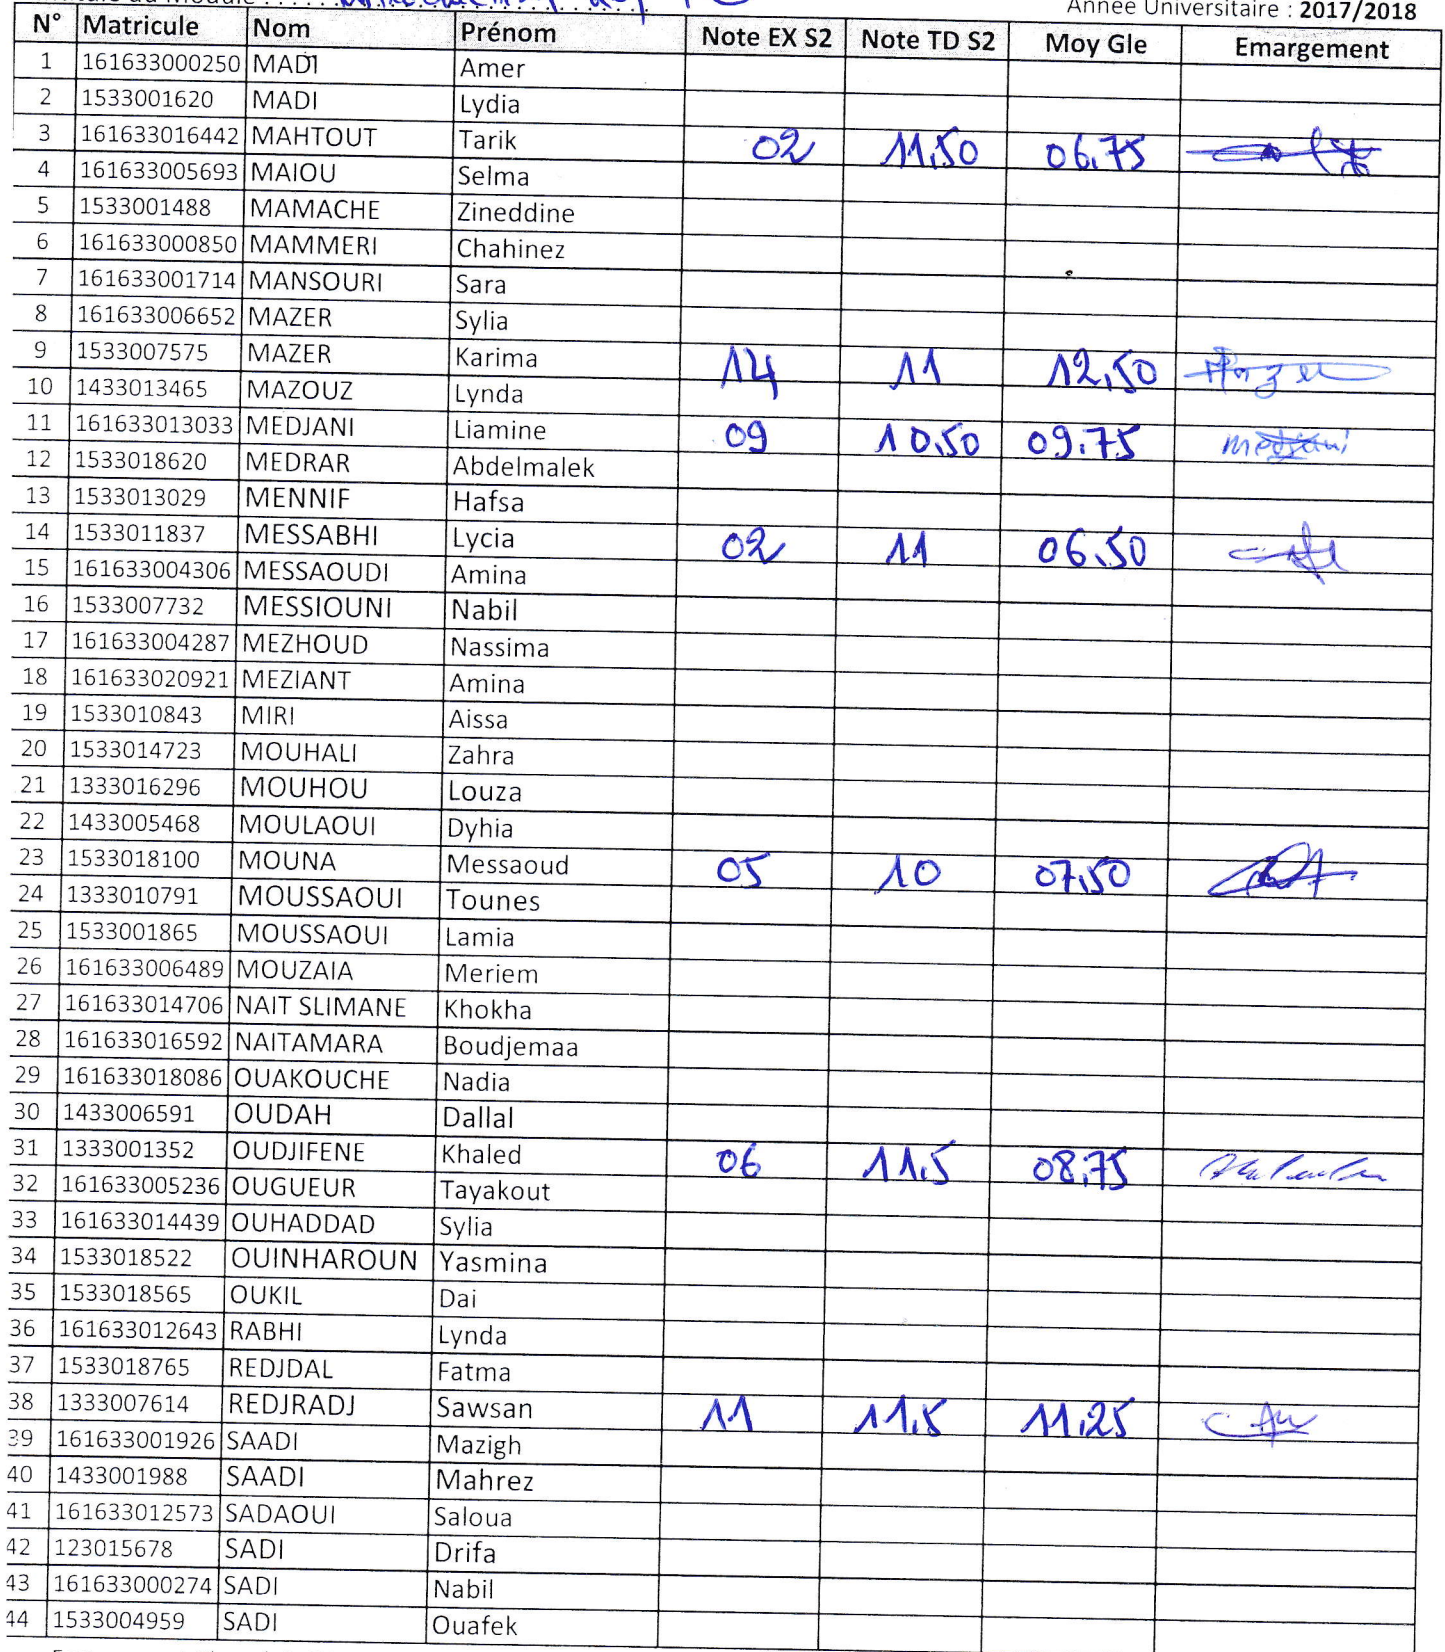 Année Universitaire : 2017/2018
N° Matricule Nom Prénom Note EX S2 Note TD S2 Moy Gle Emargement
1 161633000250 MADI Amer
2 1533001620 MADI Lydia
3 161633016442 MAHTOUT Tarik 02 11,50 06,75
4 161633005693 MAIOU Selma
5 1533001488 MAMACHE Zineddine
6 161633000850 MAMMERI Chahinez
7 161633001714 MANSOURI Sara
8 161633006652 MAZER Sylia
9 1533007575 MAZER Karima 14 11 12,50
10 1433013465 MAZOUZ Lynda
11 161633013033 MEDJANI Liamine 09 10,50 09,75 medjani
12 1533018620 MEDRAR Abdelmalek
13 1533013029 MENNIF Hafsa
14 1533011837 MESSABHI Lycia 02 11 06,50
15 161633004306 MESSAOUDI Amina
16 1533007732 MESSIOUNI Nabil
17 161633004287 MEZHOUD Nassima
18 161633020921 MEZIANT Amina
19 1533010843 MIRI Aissa
20 1533014723 MOUHALI Zahra
21 1333016296 MOUHOU Louza
22 1433005468 MOULAOUI Dyhia
23 1533018100 MOUNA Messaoud 05 10 07,50
24 1333010791 MOUSSAOUI Tounes
25 1533001865 MOUSSAOUI Lamia
26 161633006489 MOUZAIA Meriem
27 161633014706 NAIT SLIMANE Khokha
28 161633016592 NAITAMARA Boudjemaa
29 161633018086 OUAKOUCHE Nadia
30 1433006591 OUDAH Dallal
31 1333001352 OUDJIFENE Khaled 06 11,5 08,75
32 161633005236 OUGUEUR Tayakout
33 161633014439 OUHADDAD Sylia
34 1533018522 OUINHAROUN Yasmina
35 1533018565 OUKIL Dai
36 161633012643 RABHI Lynda
37 1533018765 REDJDAL Fatma
38 1333007614 REDJRADJ Sawsan 11 11,5 11,25
39 161633001926 SAADI Mazigh
40 1433001988 SAADI Mahrez
41 161633012573 SADAOUI Saloua
42 123015678 SADI Drifa
43 161633000274 SADI Nabil
44 1533004959 SADI Ouafek